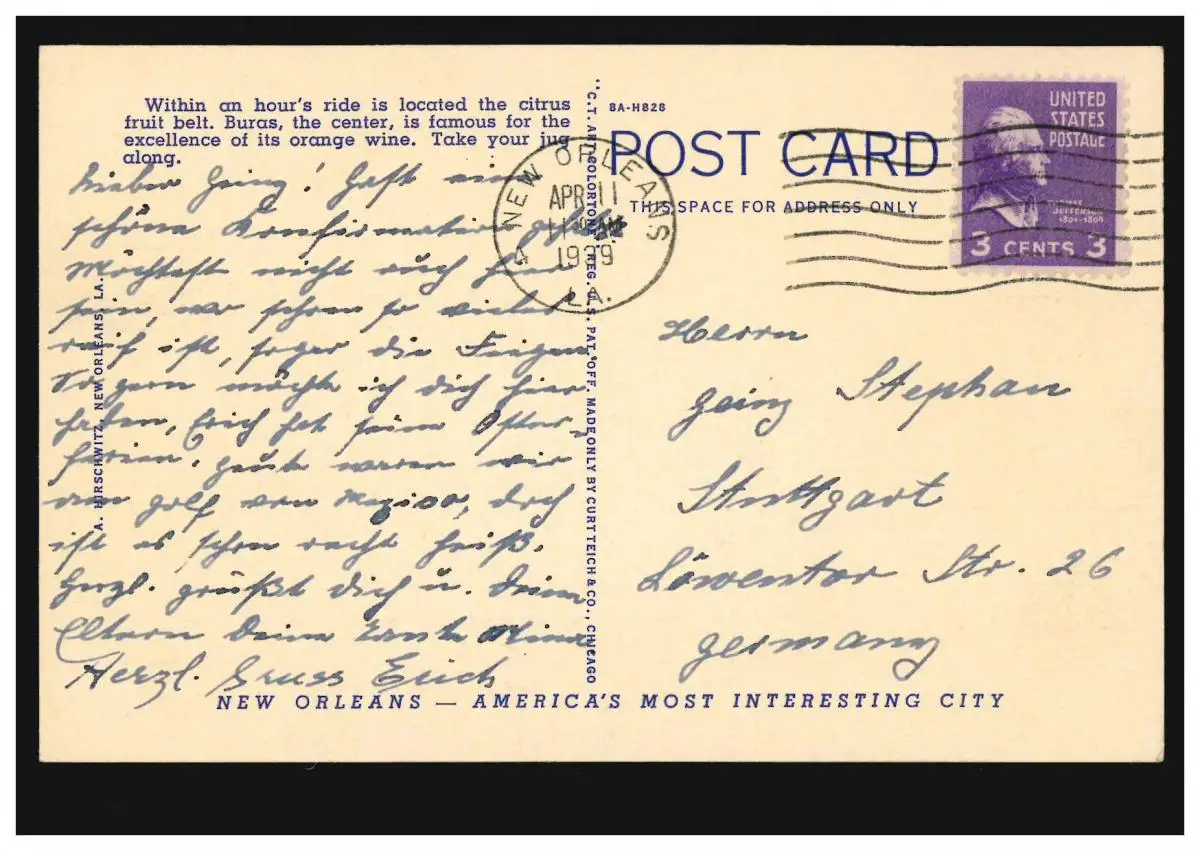 Within an hour's ride is located the citrus
fruit belt. Buras, the center, is famous for the
excellence of its orange wine. Take your jug
along.
Lieber Heinz! Hast eine
schöne Konfirmation
Möchtest nicht auch hier
sein, wo schon so vieles
reif ist, sogar die Feigen.
So gern möchte ich dich hier
haben, Erich hat seine Oster-
ferien. Heute waren wir
am Golf von Mexico, doch
ist es schon recht heiß.
Herzl. grüßt Dich u. Deine
Eltern Deine Tante
Herzl. Gruss Erich
A. HIRSCHWITZ, NEW ORLEANS, LA.
"C.T. ART-COLORTONE" REG. U.S. PAT. OFF. MADE ONLY BY CURT TEICH & CO., CHICAGO
8A-H828
POST CARD
THIS SPACE FOR ADDRESS ONLY
NEW ORLEANS
APR 11
11 30 AM
1939
4
LA.
UNITED
STATES
POSTAGE
THOMAS
JEFFERSON
1801-1809
3 CENTS 3
Herrn
Heinz Stephan
Stuttgart
Löwentor Str. 26
Germany
NEW ORLEANS — AMERICA'S MOST INTERESTING CITY